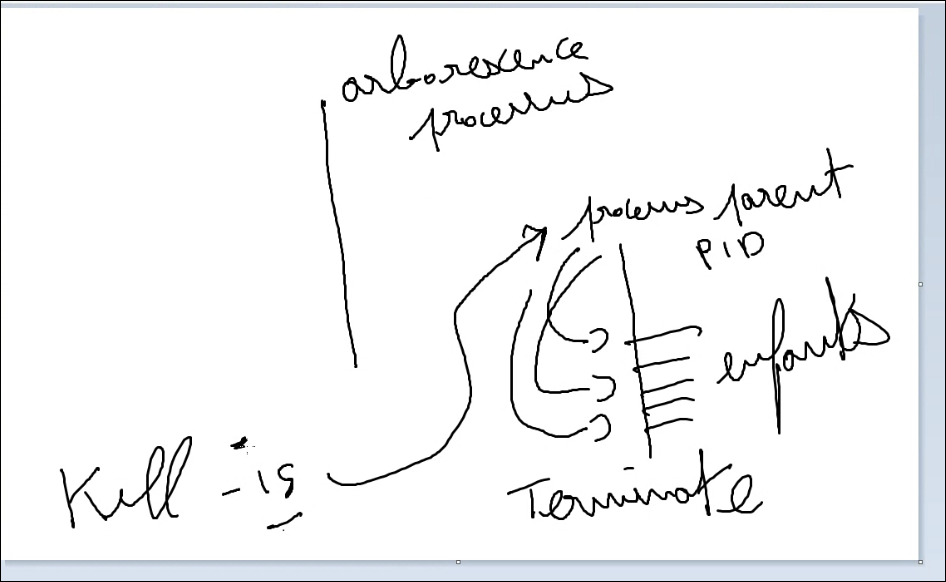 arborescence
processus
processus parent
PID
enfants
Kill -15
Terminate